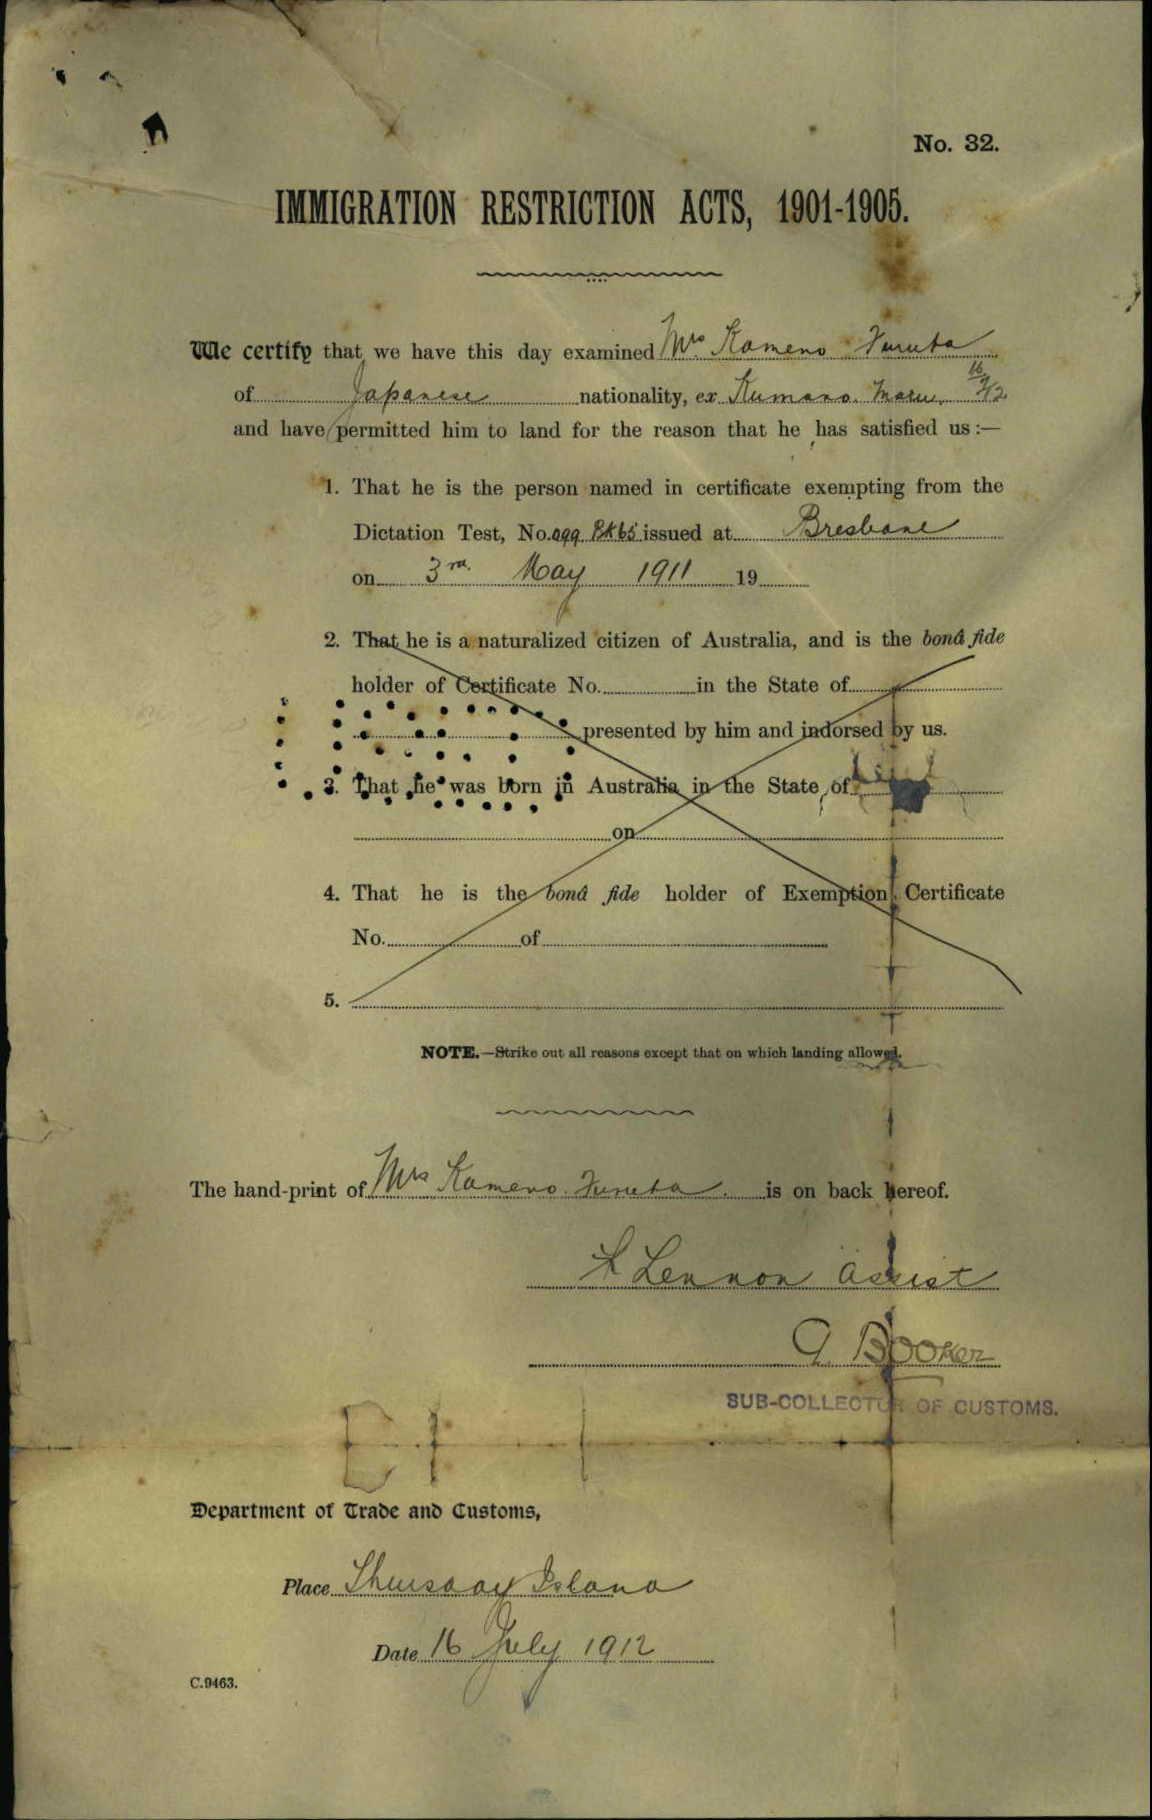 No. 32.
IMMIGRATION RESTRICTION ACTS, 1901-1905.
We certify that we have this day examined Mrs Kameno Furuta
of Japanese nationality, ex Kumano Maru. 16/7/12
and have permitted him to land for the reason that he has satisfied us:—
1. That he is the person named in certificate exempting from the
Dictation Test, No. 099 BK 65 issued at Bresbane
on 3rd. May 1911 19
2. That he is a naturalized citizen of Australia, and is the bonâ fide
holder of Certificate No. in the State of
presented by him and indorsed by us.
3. That he was born in Australia in the State of
on
4. That he is the bonâ fide holder of Exemption Certificate
No. of
5.
NOTE.—Strike out all reasons except that on which landing allowed.
The hand-print of Mrs Kameno Furuta. is on back hereof.
Lennon Assist
G. Booker
SUB-COLLECTOR OF CUSTOMS.
Department of Trade and Customs,
Place Thursday Island
Date 16 July 1912
C.9463.